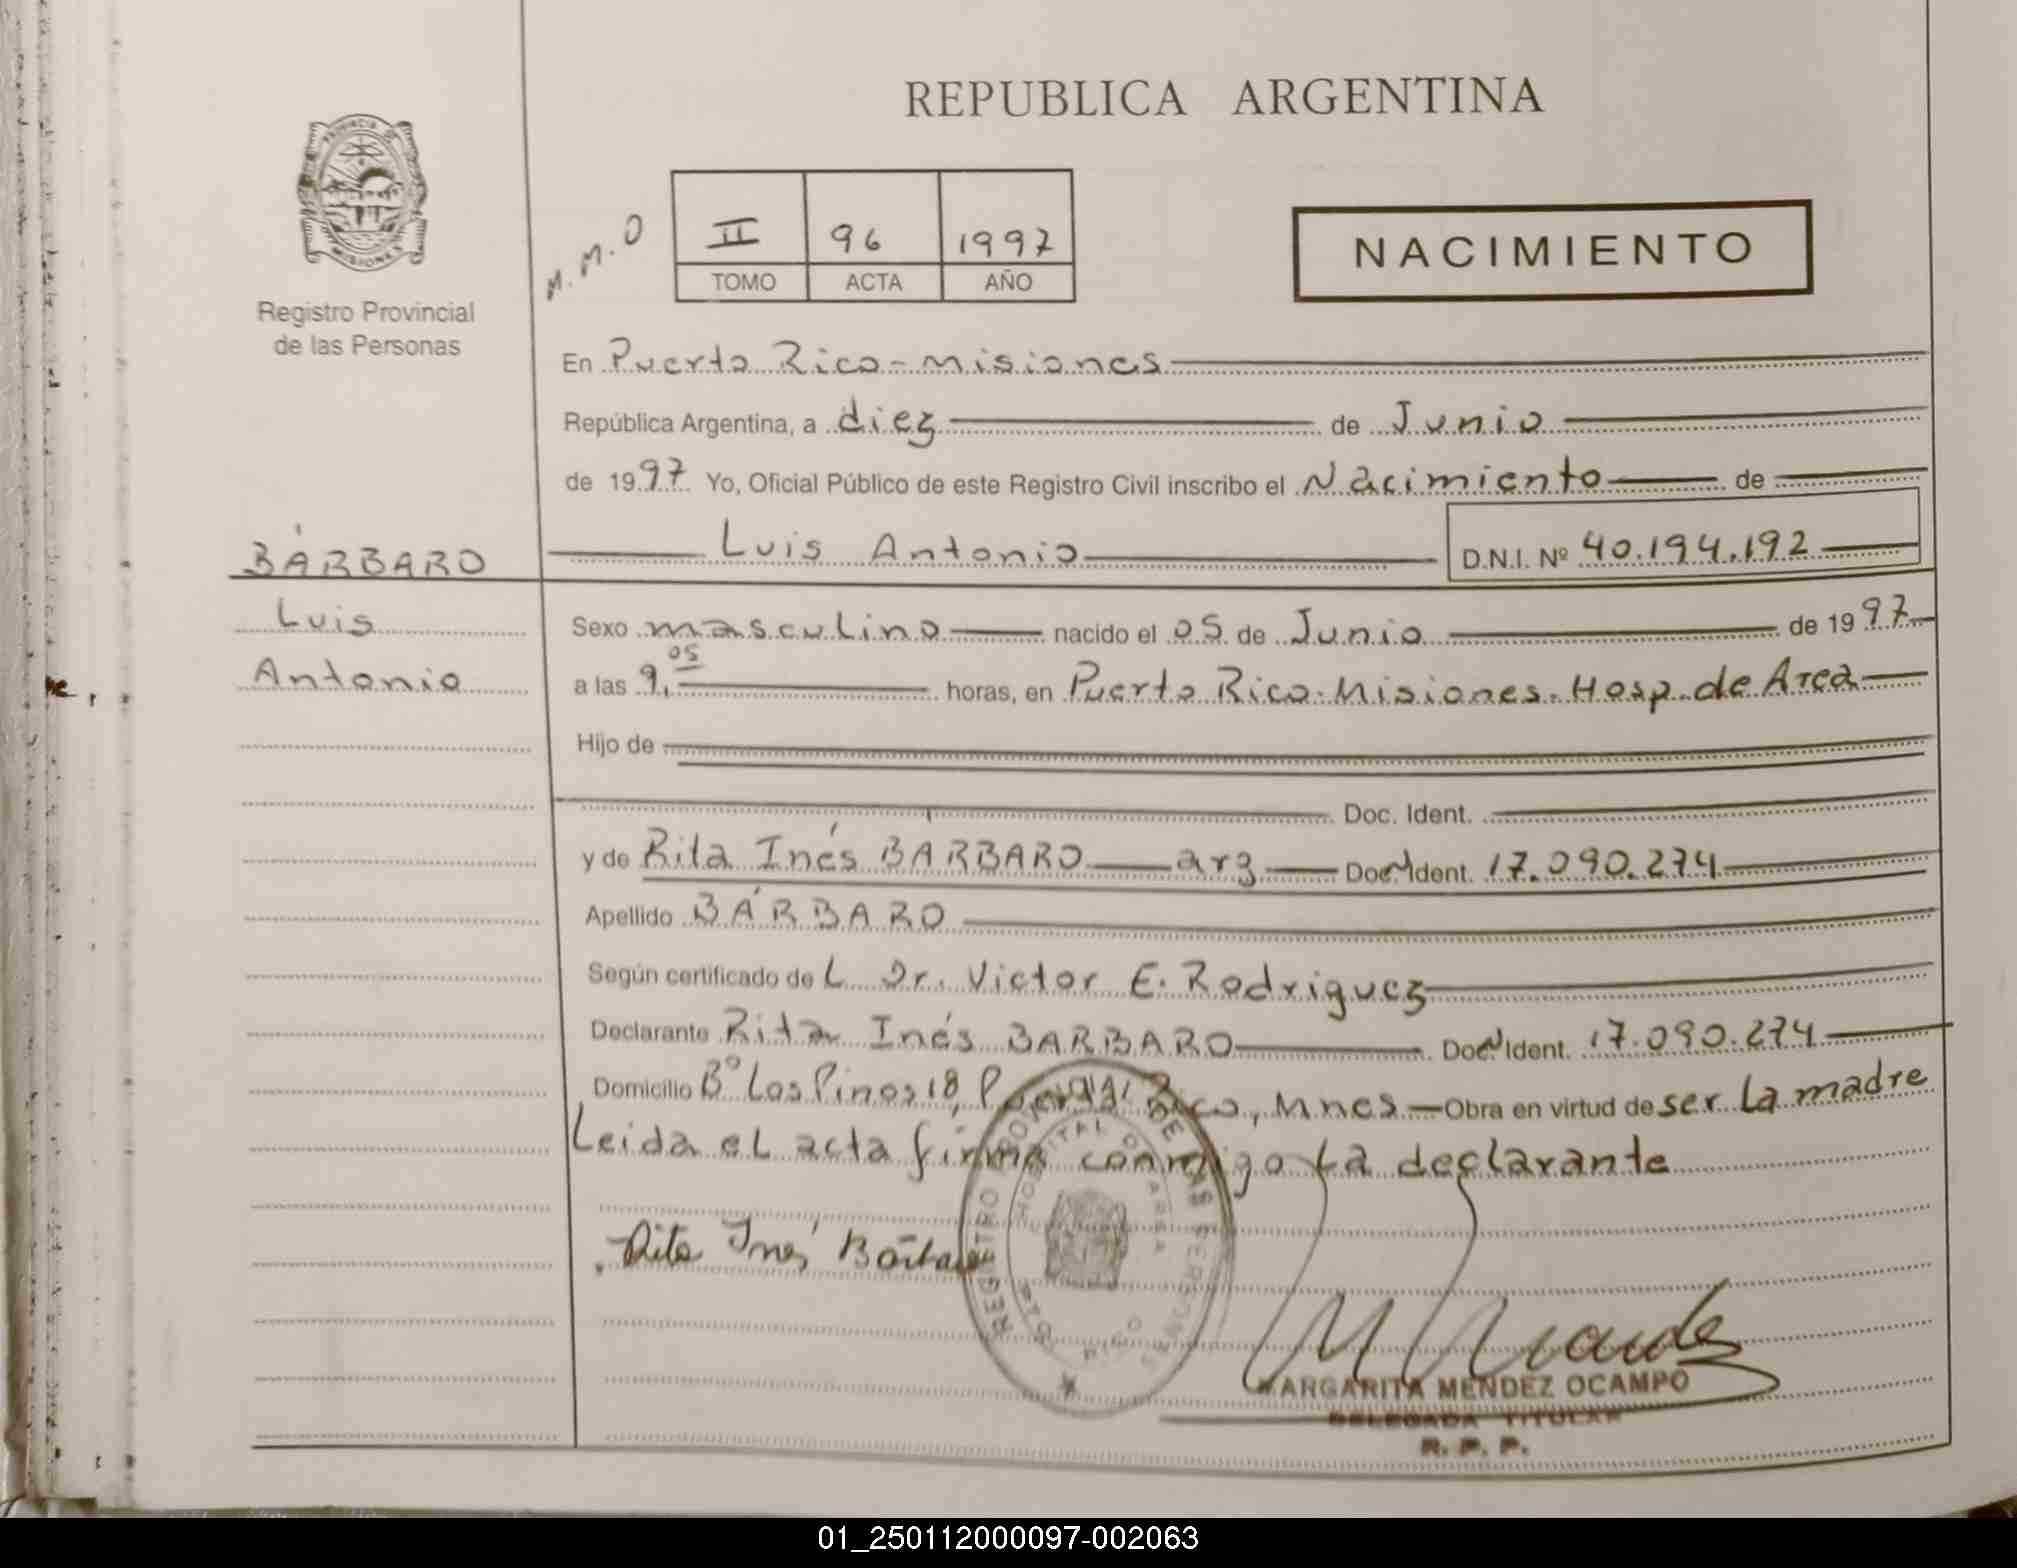 REPUBLICA ARGENTINA
PROVINCIA DE MISIONES
Registro Provincial
de las Personas
M. M. O
II 96 1997
TOMO ACTA AÑO
NACIMIENTO
En Puerto Rico - Misiones
República Argentina, a diez de Junio
de 1997 Yo, Oficial Público de este Registro Civil inscribo el Nacimiento de
BÁRBARO
Luis Antonio D.N.I. Nº 40.194.192
Luis
Antonio
Sexo masculino nacido el 05 de Junio de 1997
a las 9,05 horas, en Puerto Rico - Misiones - Hosp. de Area
Hijo de
Doc. Ident.
y de Rita Inés BÁRBARO arg Doc. Ident. 17.090.274
Apellido BÁRBARO
Según certificado de L Dr. Victor E. Rodriguez
Declarante Rita Inés BARBARO Doc. Ident. 17.090.274
Domicilio Bº Los Pinos 18, Puerto Rico, Mnes - Obra en virtud de ser la madre
Leida el acta firma conmigo la declarante
Rita Inés Bárbaro
REGISTRO PROVINCIAL DE LAS PERSONAS
HOSPITAL DE AREA
PTO. RICO
MARGARITA MENDEZ OCAMPO
DELEGADA TITULAR
R. P. P.
01_250112000097-002063